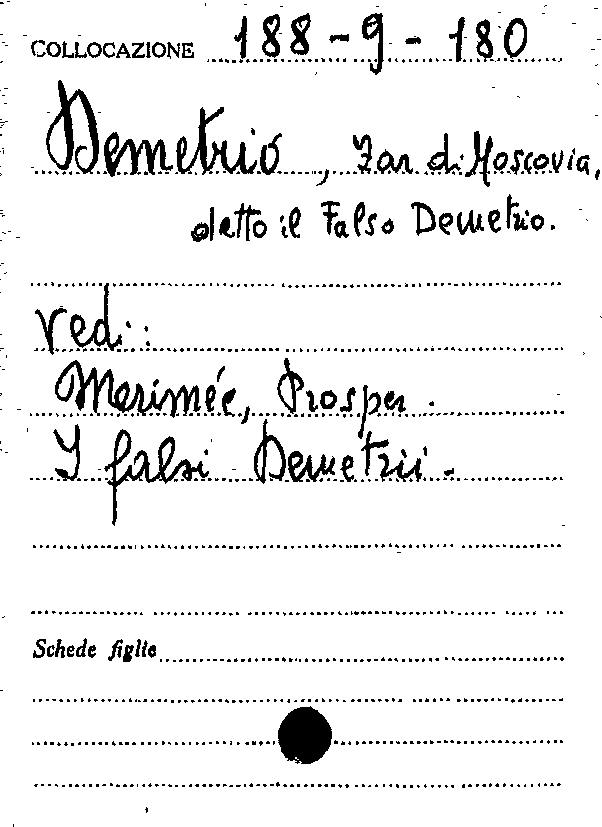 COLLOCAZIONE 188-9-180
Demetrio, Zar di Moscovia,
detto il Falso Demetrio.
Vedi:
Merimée, Prosper.
I falsi Demetrii.
Schede figlie